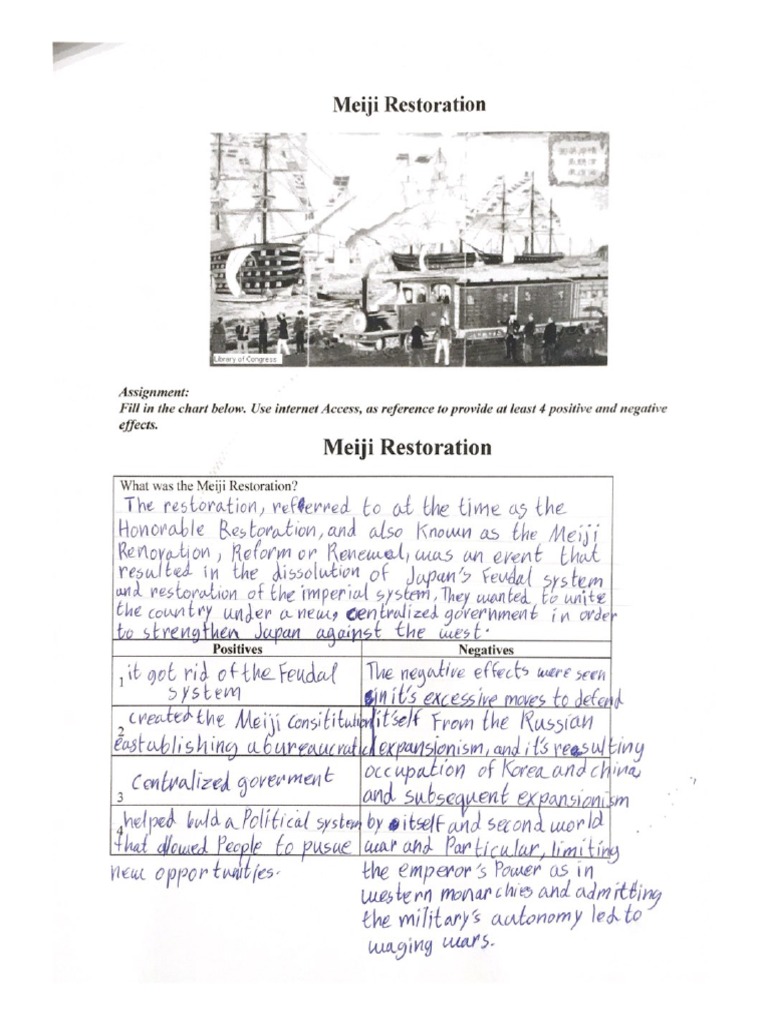 Meiji Restoration
Library of Congress
Assignment:
Fill in the chart below. Use internet Access, as reference to provide at least 4 positive and negative
effects.
Meiji Restoration
What was the Meiji Restoration?
The restoration, referred to at the time as the
Honorable Restoration, and also Known as the Meiji
Renovation, Reform or Renewal, was an event that
resulted in the dissolution of Japan's Feudal system
and restoration of the imperial system, They wanted to unite
the country under a new, centralized government in order
to strengthen Japan against the west.
Positives
1 it got rid of the Feudal
system
2 created the Meiji Consititution
eastablishing a bureaucratic
3 Centralized goverment
4 helped buld a Political system
that allowed People to pusue
new opportunities.
Negatives
The negative effects were seen
in it's excessive moves to defend
itself From the Russian
expansionism, and it's resulting
occupation of Korea and china
and subsequent expansionism
by itself and second world
war and Particular, limiting
the emperor's Power as in
western monarchies and admitting
the military's autonomy led to
waging wars.